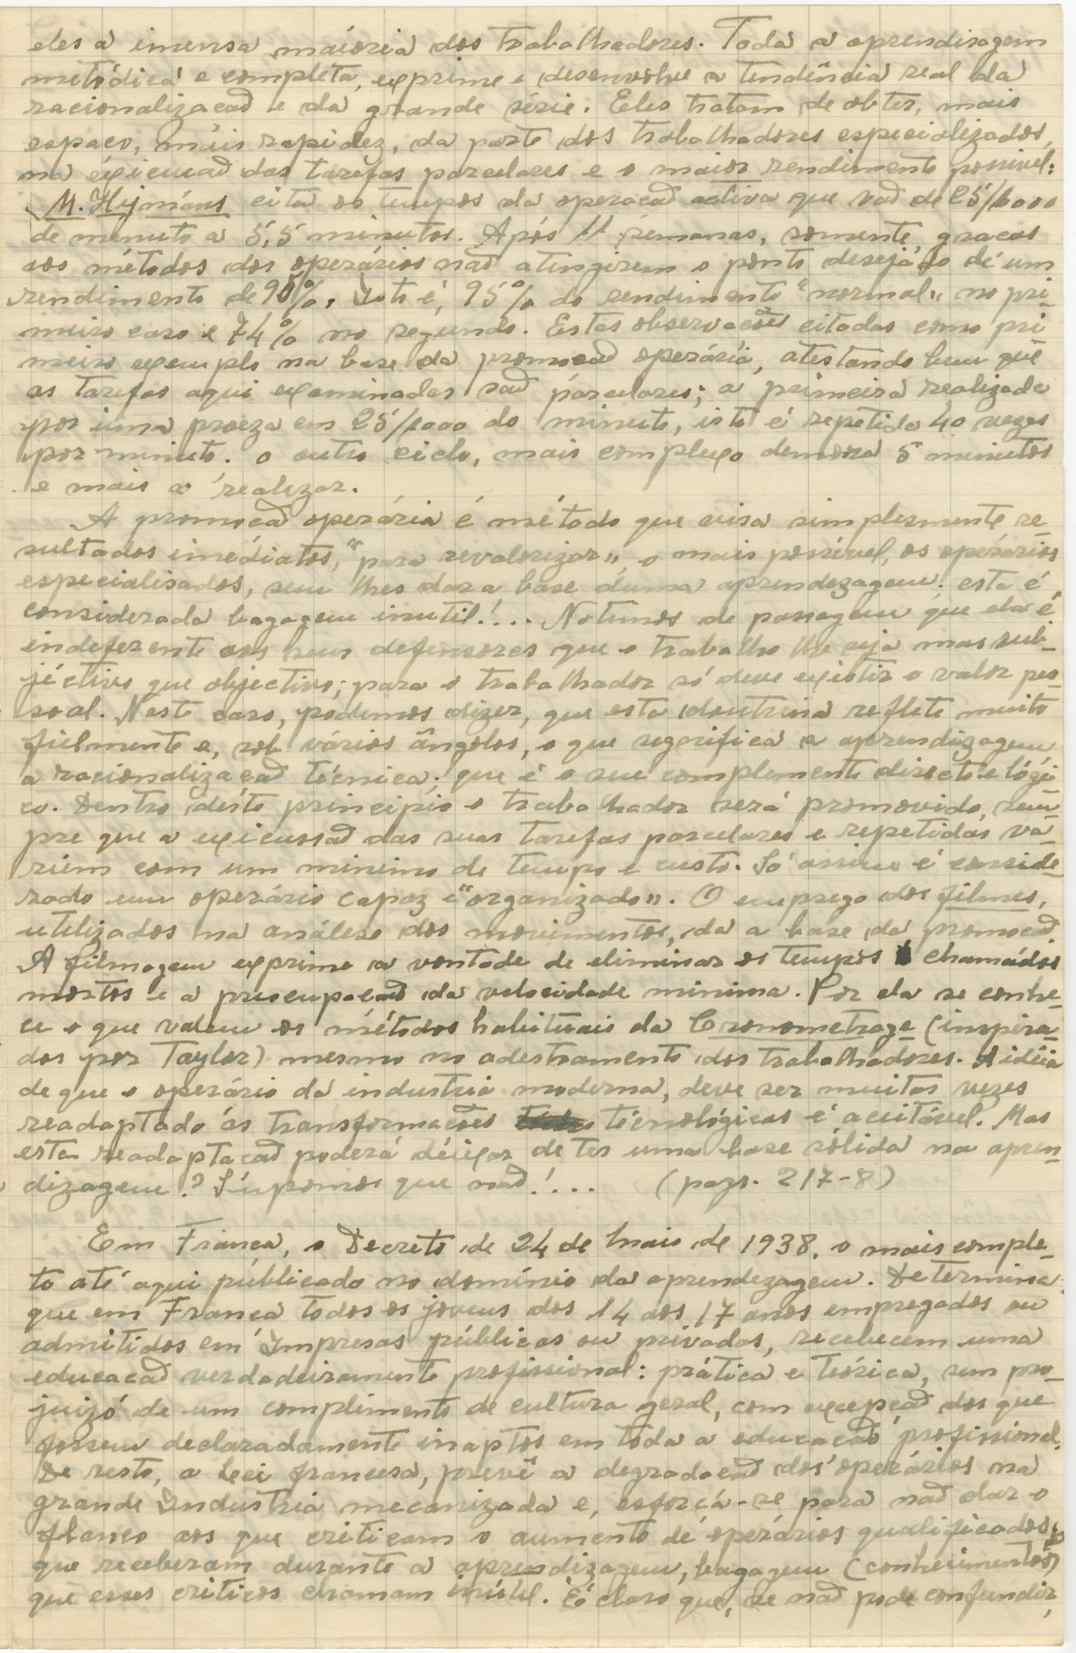 eles a imensa maioria dos trabalhadores. Toda a aprendisagem
metódica e completa, exprime e desenvolve a tendência real da
racionalizacaõ e da grande série. Eles tratam de obter, mais
espaço, mais rapidez, da parte dos trabalhadores especializados,
na éxicucaõ das tarefas parcelares e o maior rendimento possivel:
M. Hymáns cita os tempos da operacaõ activa que vaõ de 25/1000
de minuto a 5,5 minutos. Após 11 semanas, somente, gracas
aos métodos dos operários naõ atingirem o ponto desejádo de um
rendimento de 90%. Isto é, 95% do rendimento "normal" no pri-
meiro caso e 74% no segundo. Estas observacoẽs citadas como pri
meiro exemplo na base da promocaõ operária, atestando bem que
as tarefas aqui examinadas saõ parcelares; a primeira realizada
por uma proeza em 25/1000 do minuto, isto é repetida 40 vezes
por minuto. o outro ciclo, mais complexo demora 5 minutos
e mais a realizar.
A promocaõ operária é método que visa simplesmente re-
sultados imediátos, "para revalorizar", o mais possivel, os operários
especialisados, sem lhes dar a base duma aprendezagem. esta é
considerada bagagem inutil!... Notemos de passagem que ela é
indeferente aos seus defensores que o trabalho lhe seja mas sub-
jéctivo que objectivo; para o trabalhador só deve existir o valor pes-
soal. Neste caso, podemos dizer, que esta doutrina reflete muito
fielmente e, sob vários ângolos, o que segnifica a aprendizagem
a racionalizacaõ técnica; que é o seu complemento directo e lógi-
co. Dentro dêste principio o trabalhador será promovido, sem-
pre que a exicussaõ das suas tarefas parcelares e repetidas va-
riem com um minimo de tempo e custo. Só assim é conside-
rado um operário capaz e "organizado". O emprego dos filmes,
utilizados na análese dos movimentos, da a base da promocaõ
A filmagem exprime a vontade de eliminar os tempos chamádos
mortos e a preocupacaõ da velocidade minima. Por ela se conhe-
ce o que valem os métodos habituais da Cronometrage (inspira-
dos por Taylor) mesmo no adestramento dos trabalhadores. A idéia
de que o operário da industria moderna, deve ser muitas vezes
readaptado ás transformacoẽs técnológicas é aceitável. Mas
esta readaptacaõ poderá déixar de ter uma base sólida na apren-
dizagem? Supomos que naõ!... (pags. 217-8)
Em Franca, o Decreto de 24 de Maio de 1938, o mais comple-
to até aqui públicado no domínio da aprendezagem. Determina
que em Franca todos os jovens dos 14 aos 17 anos empregados ou
admitidos em Impresas públicas ou privadas, recebecem uma
educacaõ verdadeiramente profissional: prática e teórica, sem pre-
juijó de um complimento de cultura geral, com excepcaõ dos que
fossem declaradamente inaptos em toda a educacaõ profissional.
De resto, a Lei francesa, prevê a degradacaõ dos operários na
grande Industria mecanizada e, esforcá-se para naõ dar o
flanco aos que criticam o aumento de operários qualificados,
que receberam durante a aprendizagem, bagagem (conhecimentos)
que esses criticos chamam inútel. É claro que, se naõ pode confundir,